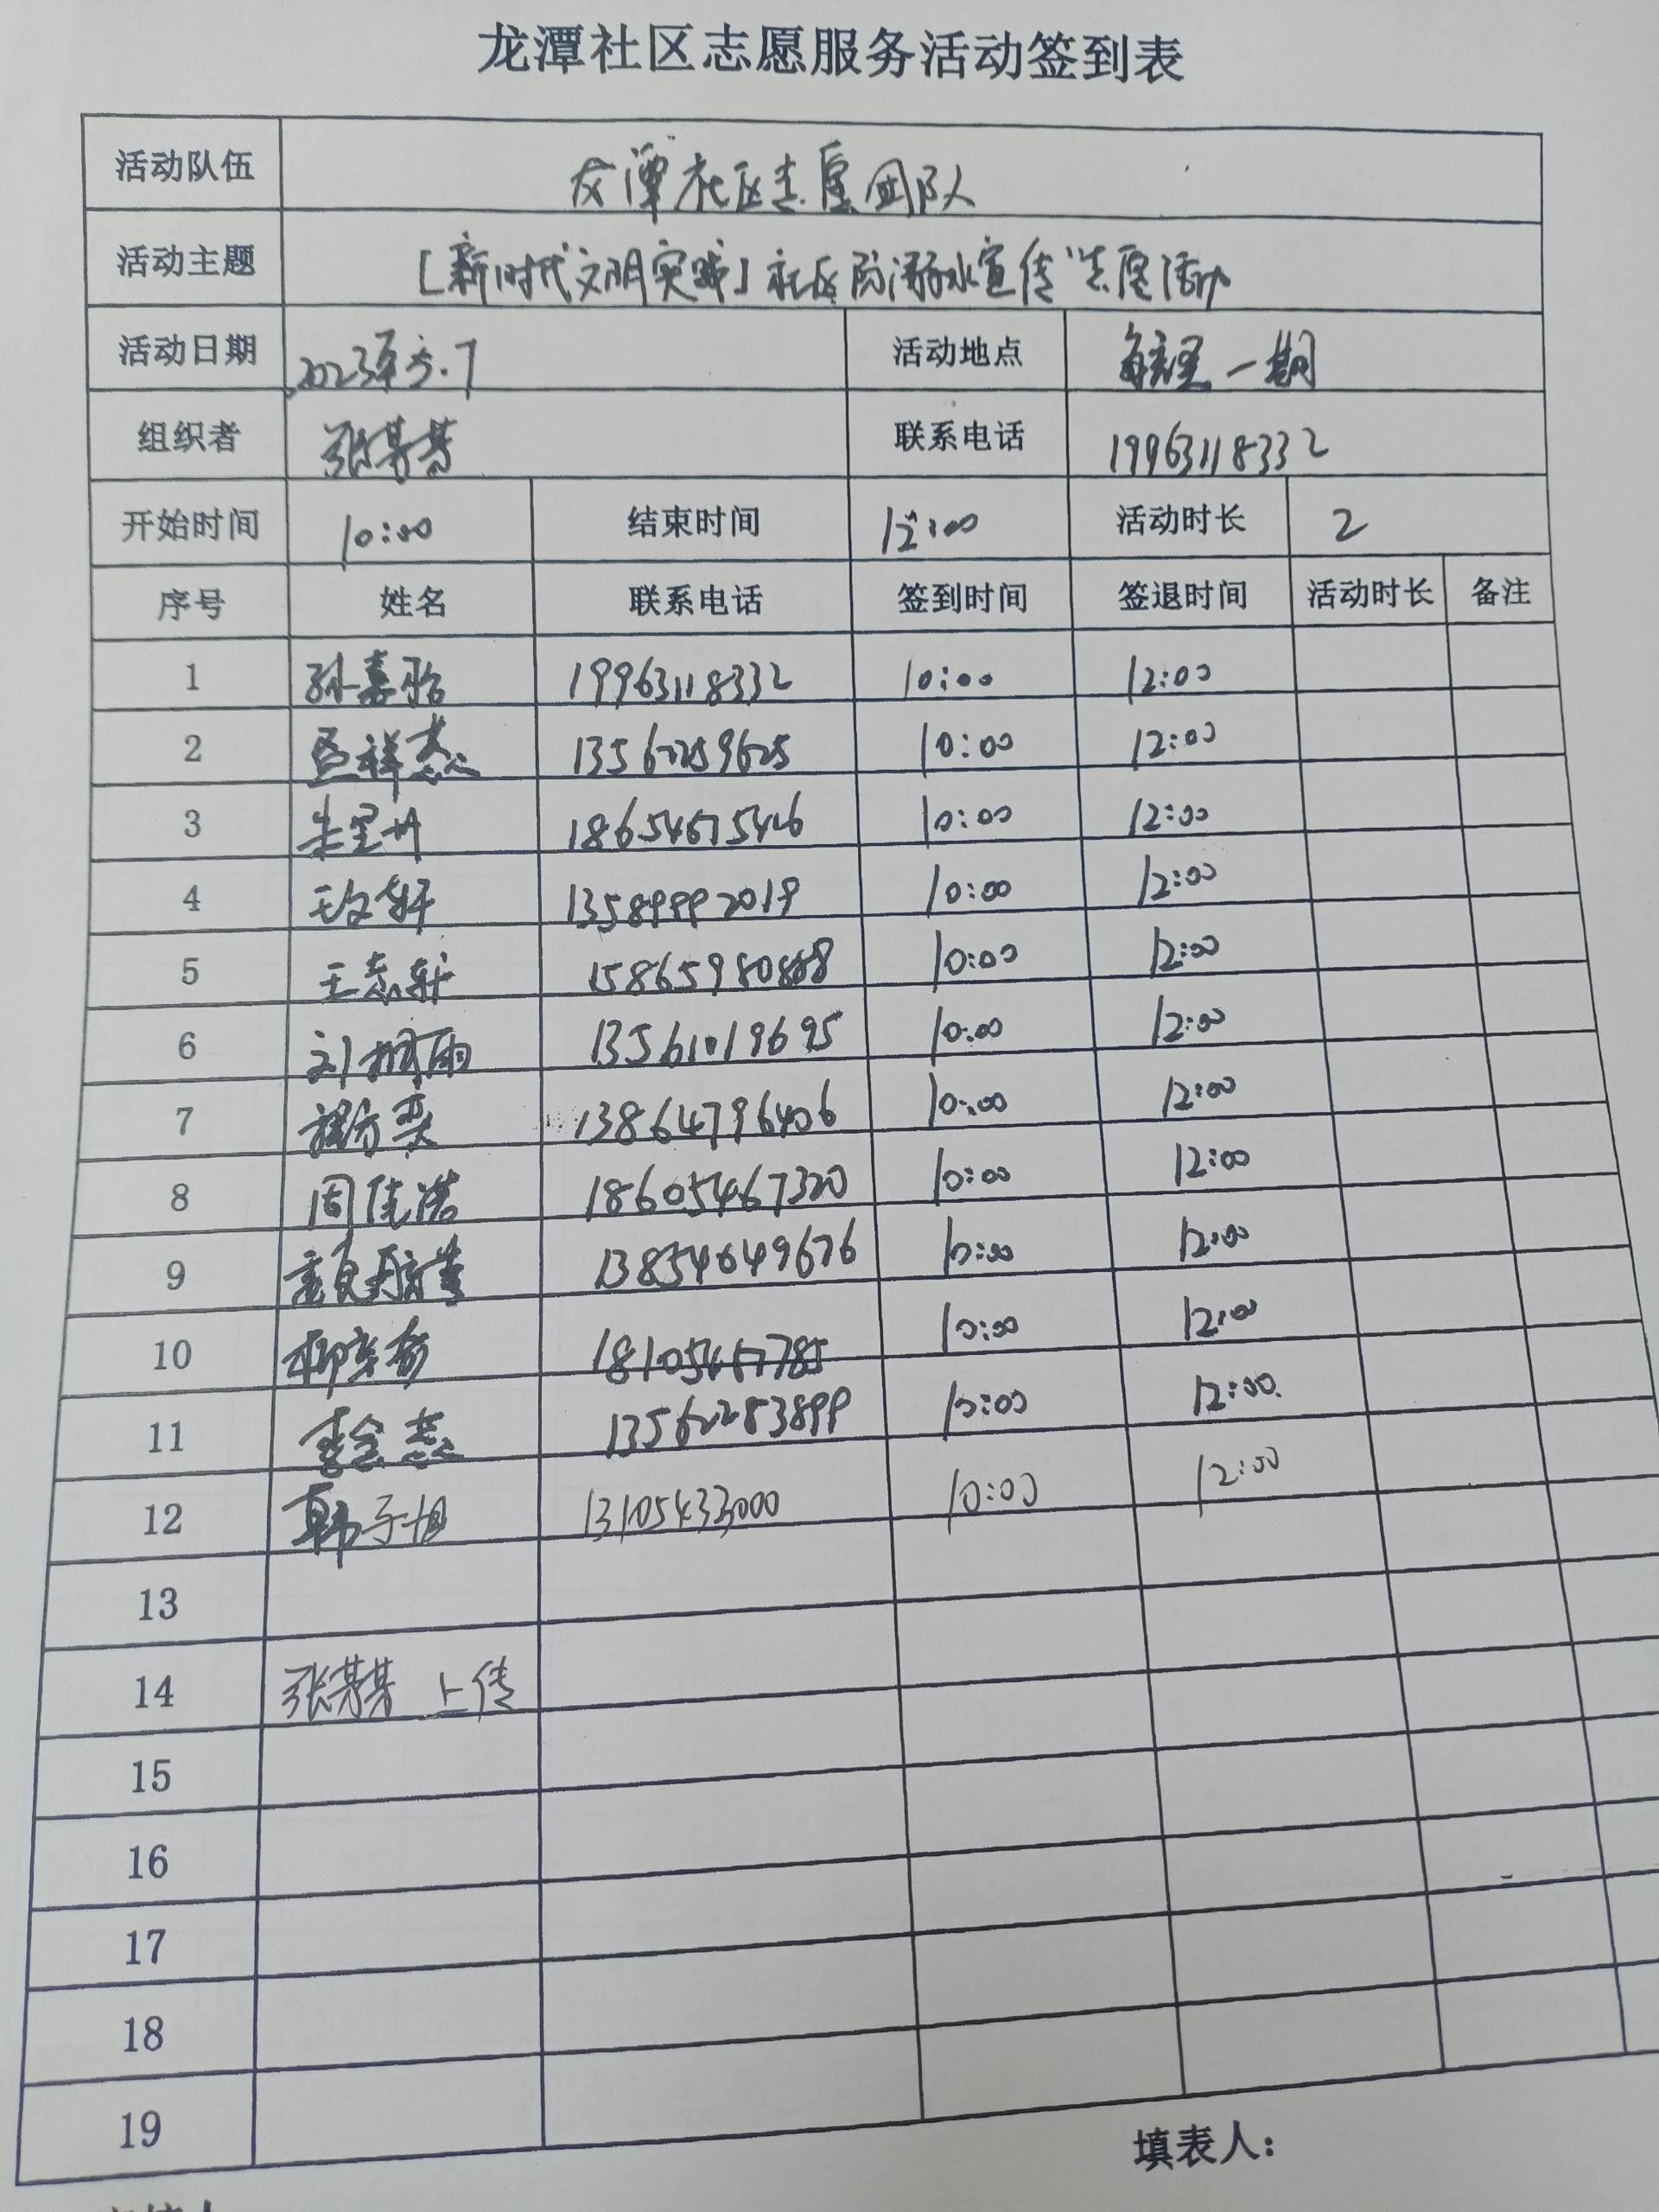 龙潭社区志愿服务活动签到表
活动队伍 龙潭社区志愿团队
活动主题 [新时代文明实践]社区防溺水宣传"志愿活动
活动日期 2023年5.7 活动地点 一期
组织者 张芳芳 联系电话 19963118332
开始时间 10:00 结束时间 12:00 活动时长 2
序号 姓名 联系电话 签到时间 签退时间 活动时长 备注
1 孙嘉怡 19963118332 10:00 12:00
2 13562259625 10:00 12:00
3 10:00 12:00
4 王文轩 13589992019 10:00 12:00
5 王志轩 15865980888 10:00 12:00
6 13561019695 10:00 12:00
7 13864796406 10:00 12:00
8 周佳浩 18605467320 10:00 12:00
9 13854649676 10:00 12:00
10 18105467785 10:00 12:00
11 李金蕊 13562283899 10:00 12:00.
12 韩子旭 13105433000 10:00 12:00
13
14 张芳芳 上传
15
16
17
18
19
填表人: